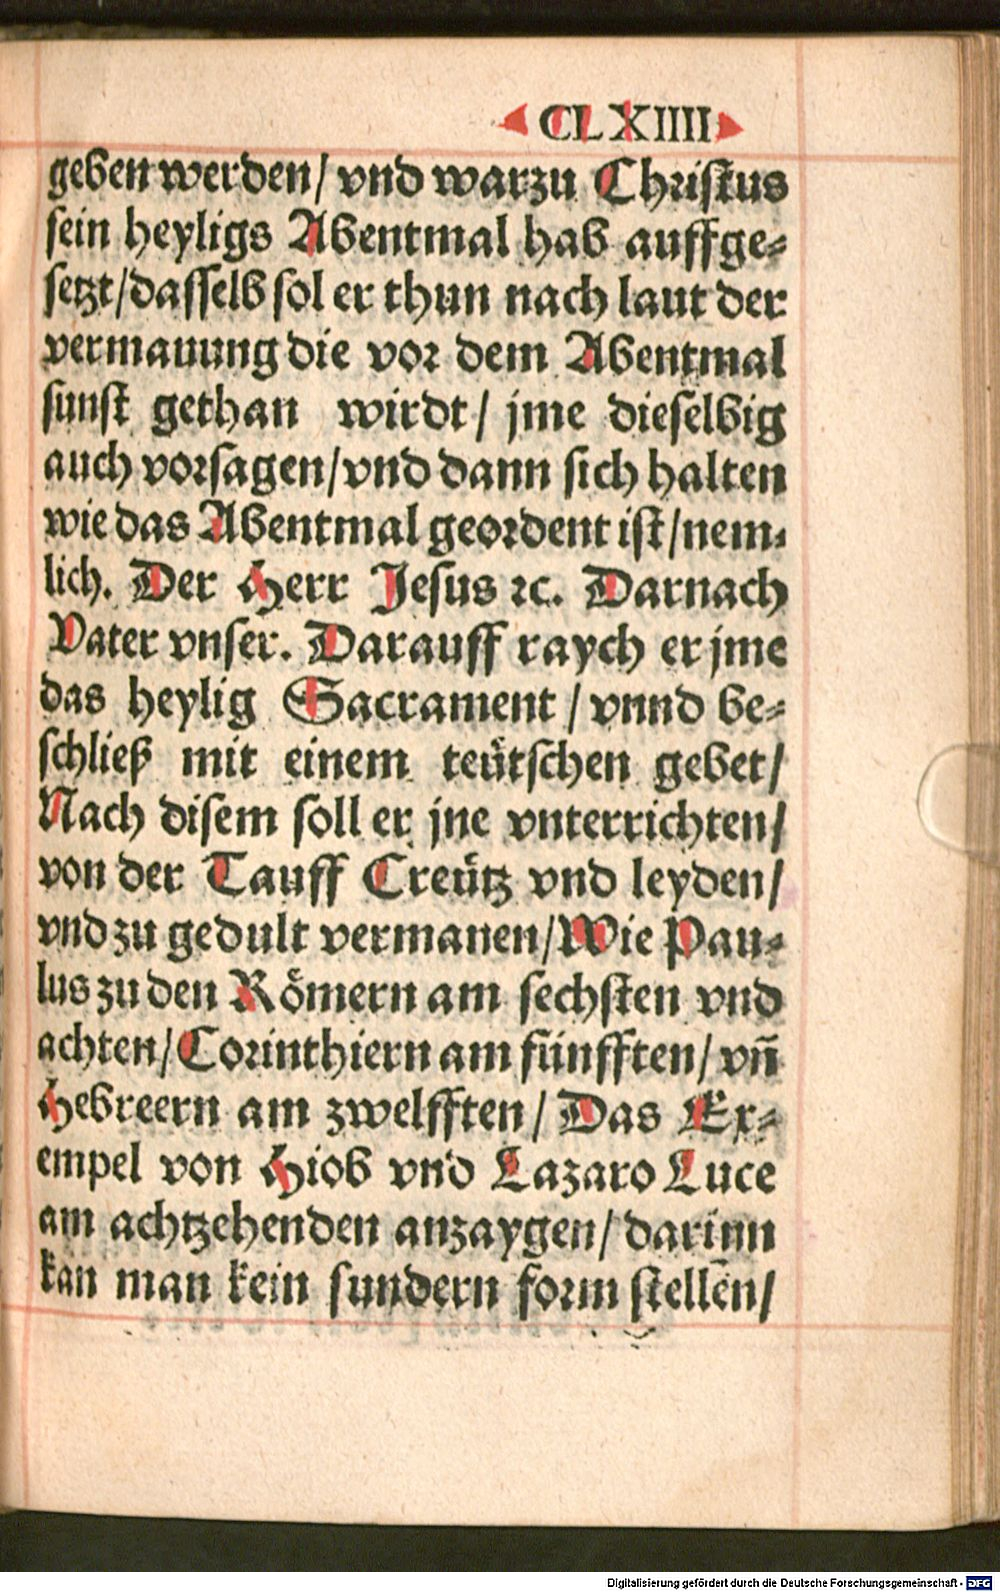 CLXIIII
geben werden/ vnd warzu Christus
sein heyligs Abentmal hab auffge-
setzt/dasselb sol er thun nach laut der
vermauung die vor dem Abentmal
sunst gethan wirdt/ jme dieselbig
auch vorsagen/vnd dann sich halten
wie das Abentmal geordent ist/nem-
lich. Der Herr Jesus ꝛc. Darnach
Vater vnser. Darauff raych er jme
das heylig Sacrament / vnnd be-
schließ mit einem teütschen gebet/
Nach disem soll er jne vnterrichten/
von der Tauff Creütz vnd leyden/
vnd zu gedult vermanen/Wie Pau-
lus zu den Römern am sechsten vnd
achten/Corinthiern am fünfften/ vñ
Hebreern am zwelfften/ Das Ex-
empel von Hiob vnd Lazaro Luce
am achtzehenden anzaygen/ darinn
kan man kein sundern form stellen/
Digitalisierung gefördert durch die Deutsche Forschungsgemeinschaft - DFG